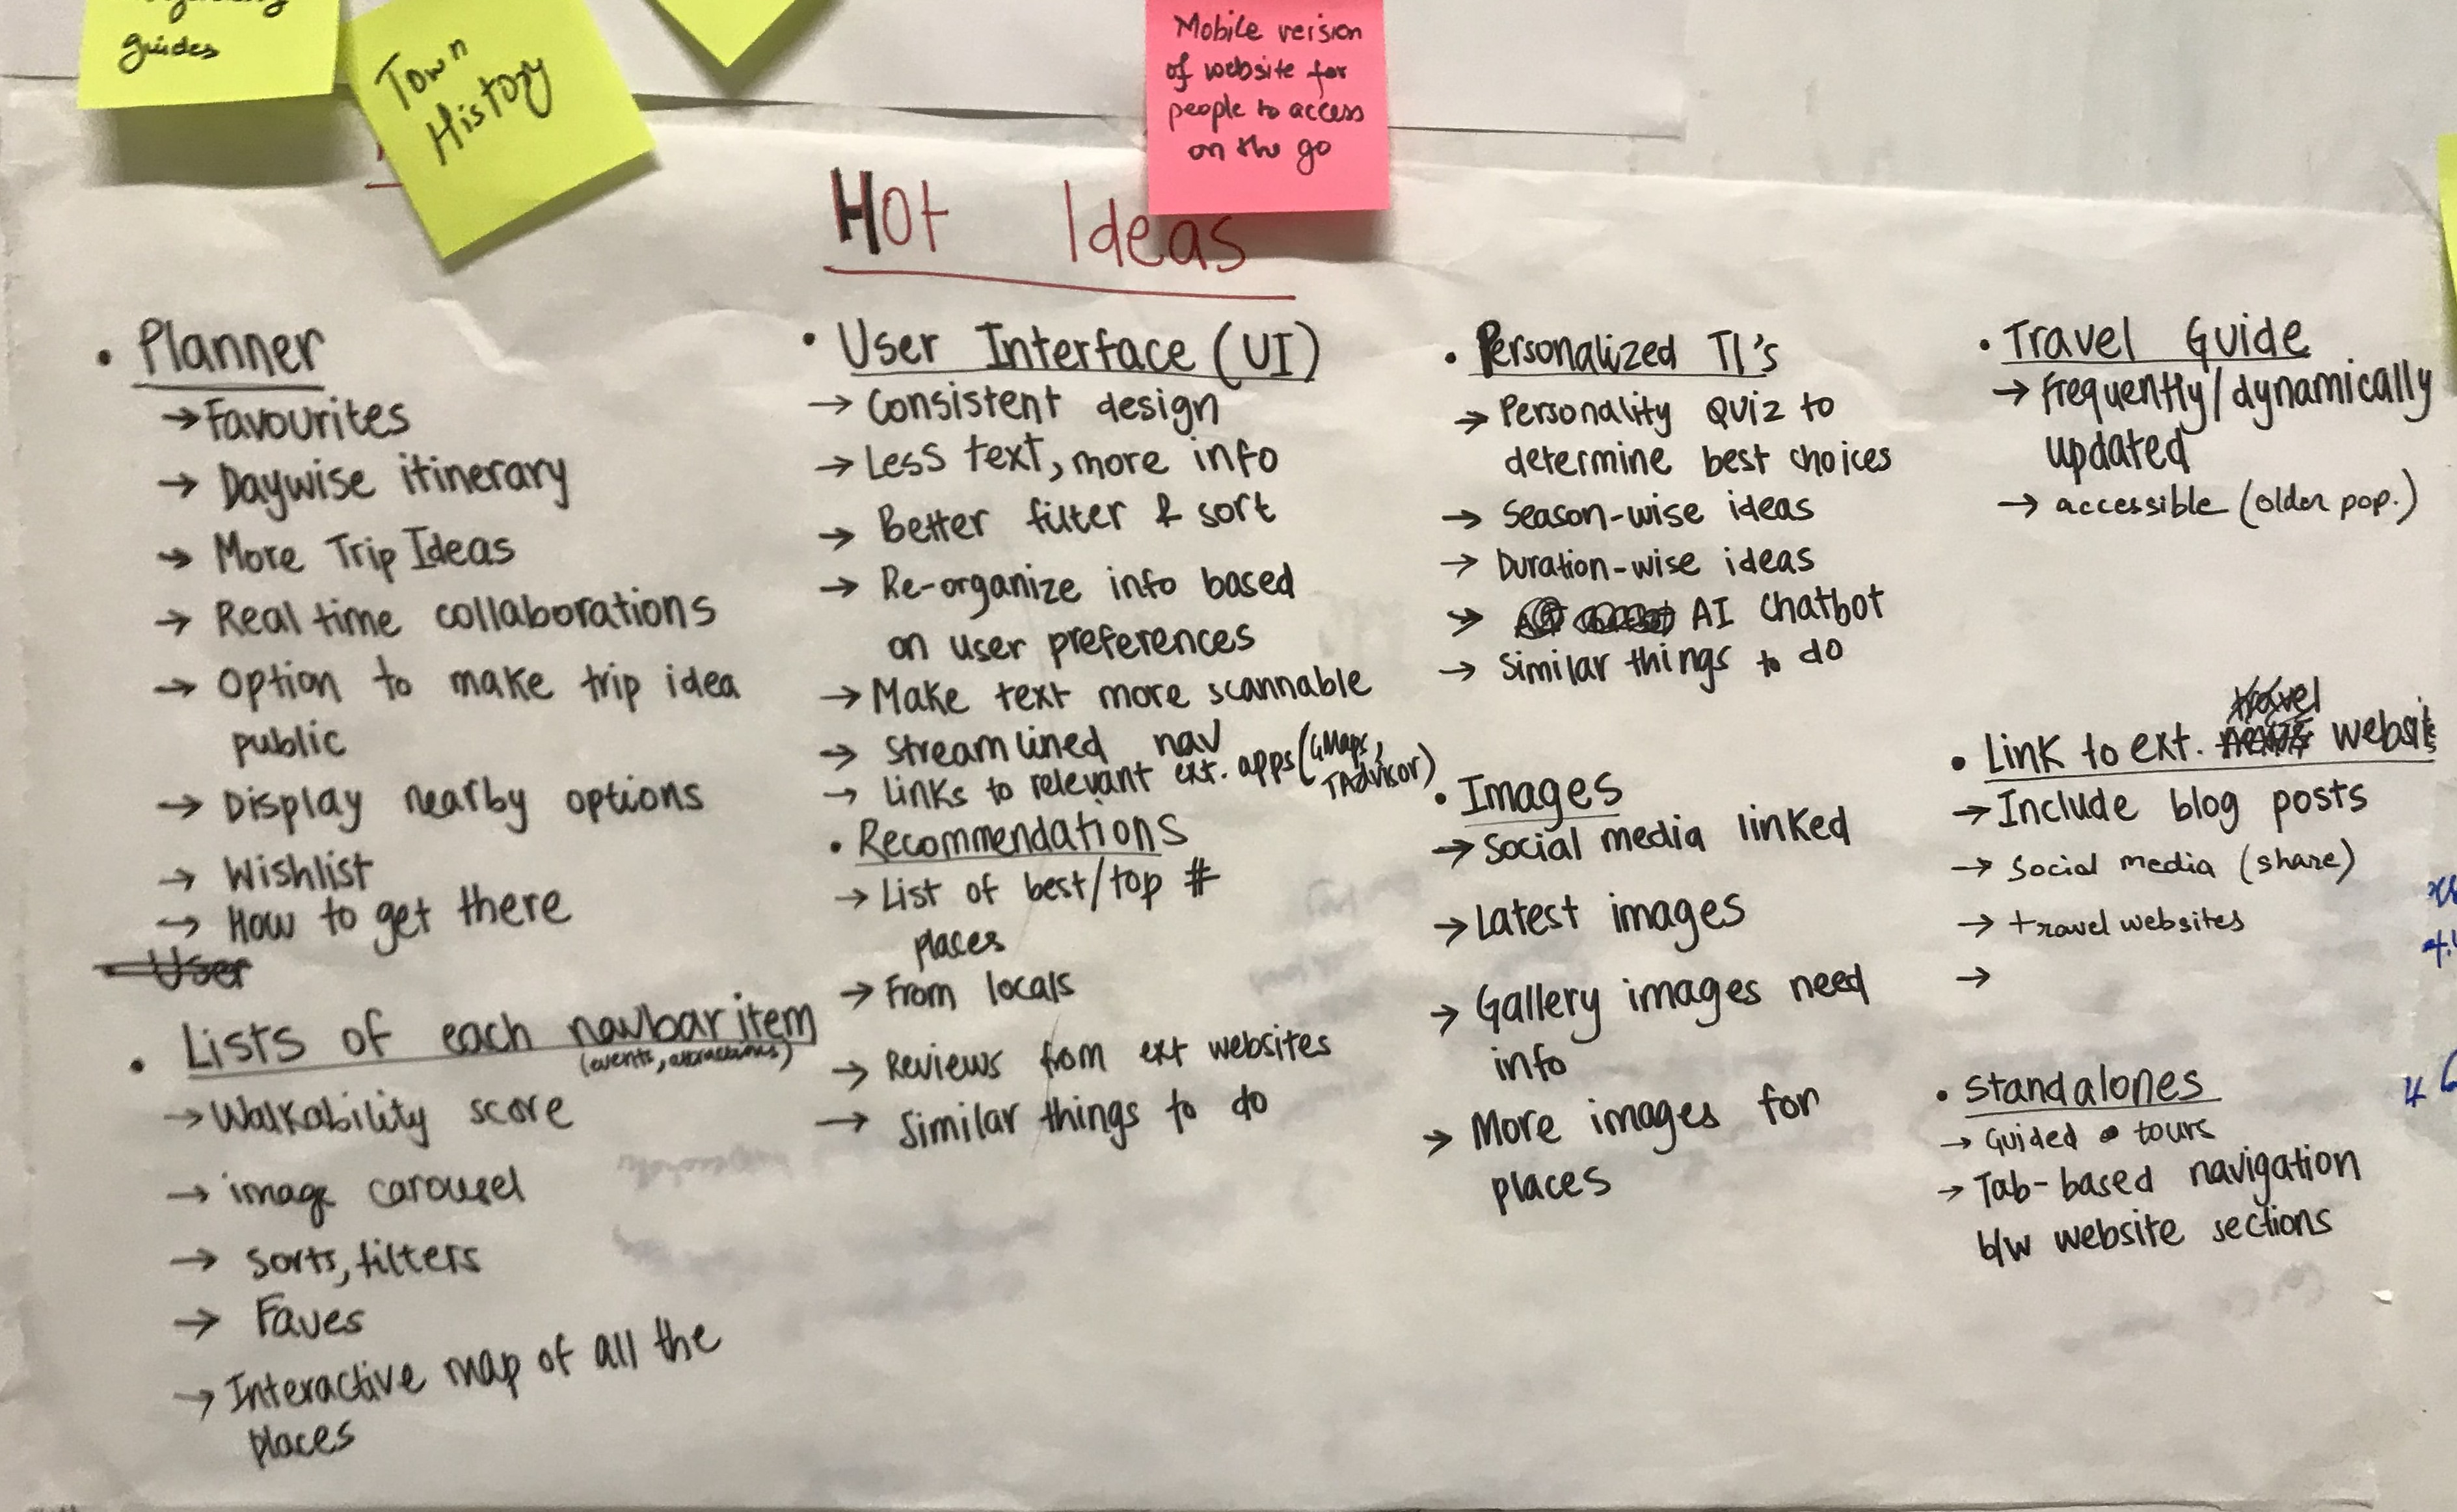 guides
Town
History
Mobile version
of website for
people to access
on the go
Hot Ideas
• Planner
→ Favourites
→ Daywise itinerary
→ More Trip Ideas
→ Real time collaborations
→ Option to make trip idea
public
→ Display nearby options
→ Wishlist
→ How to get there
• User
• Lists of each navbar item
(events, attractions)
→ Walkability score
→ image carousel
→ Sorts, filters
→ Faves
→ Interactive map of all the
places
• User Interface (UI)
→ Consistent design
→ Less text, more info
→ Better filter & sort
→ Re-organize info based
on user preferences
→ Make text more scannable
→ Streamlined nav
→ Links to relevant ext. apps (GMaps,
TAdvisor)
• Recommendations
→ List of best/top #
places
→ From locals
→ Reviews from ext websites
→ Similar things to do
• Personalized TI's
→ Personality Quiz to
determine best choices
→ Season-wise ideas
→ Duration-wise ideas
→ AI Chatbot
→ Similar things to do
• Images
→ Social media linked
→ Latest images
→ Gallery images need
info
→ More images for
places
• Travel Guide
→ Frequently/dynamically
updated
→ accessible (older pop.)
travel
• Link to ext. websit
→ Include blog posts
→ Social media (share)
→ travel websites
→
• Standalones
→ Guided tours
→ Tab-based navigation
b/w website sections